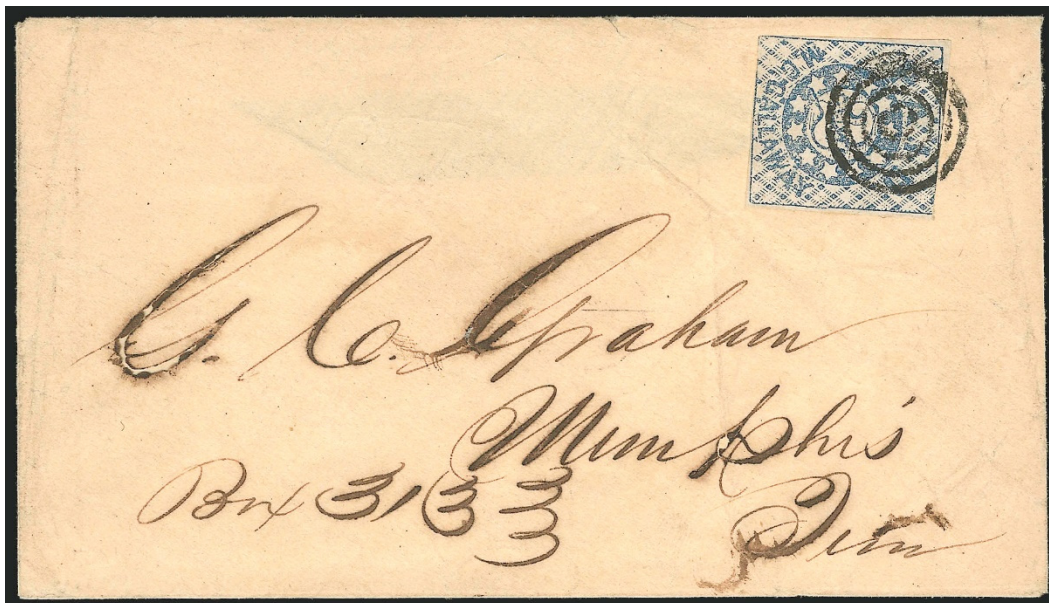 M.C. GALLAWAY
G. C. Graham
Memphis
Box 3133
Tenn